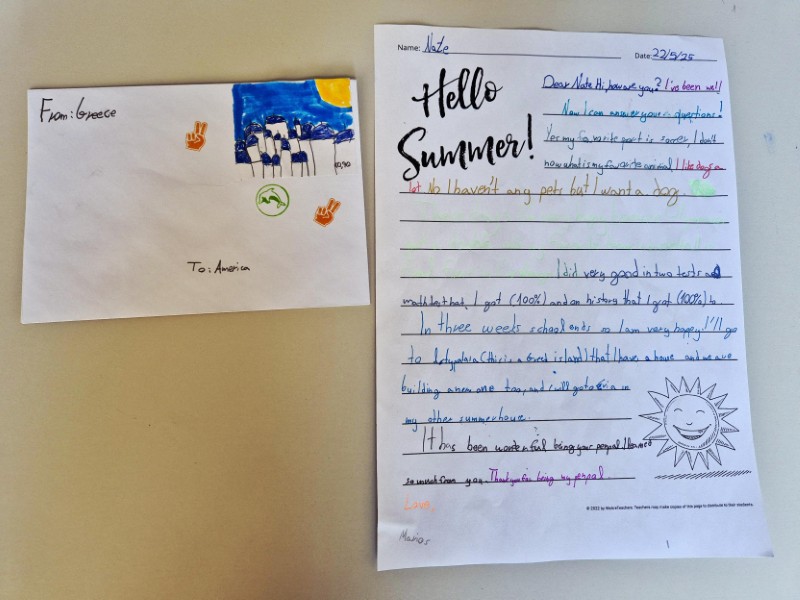 From: Greece
0,90
To: America
Name: Nate
Date: 22/5/25
Hello
Summer!
Dear Nate Hi, how are you? I've been well
Now I can answer your questions!
Yes my favorite sport is soccer, I don't
now what is my favorite animal I like dogs a
lot. No I haven't any pets but I want a dog.
I did very good in two tests
math test that I got (100%) and on history that I got (100%) to.
In three weeks school ends so I am very happy! I'll go
to (this is a Greek island) that I have a house and we are
building a new one too, and I will go to in
my other summerhouse.
It has been wonderful being your penpal I learned
so much from you. Thank you for being my penpal.
Love,
Marios
© 2022 by Teachers may make copies of this page to distribute to their students.
1